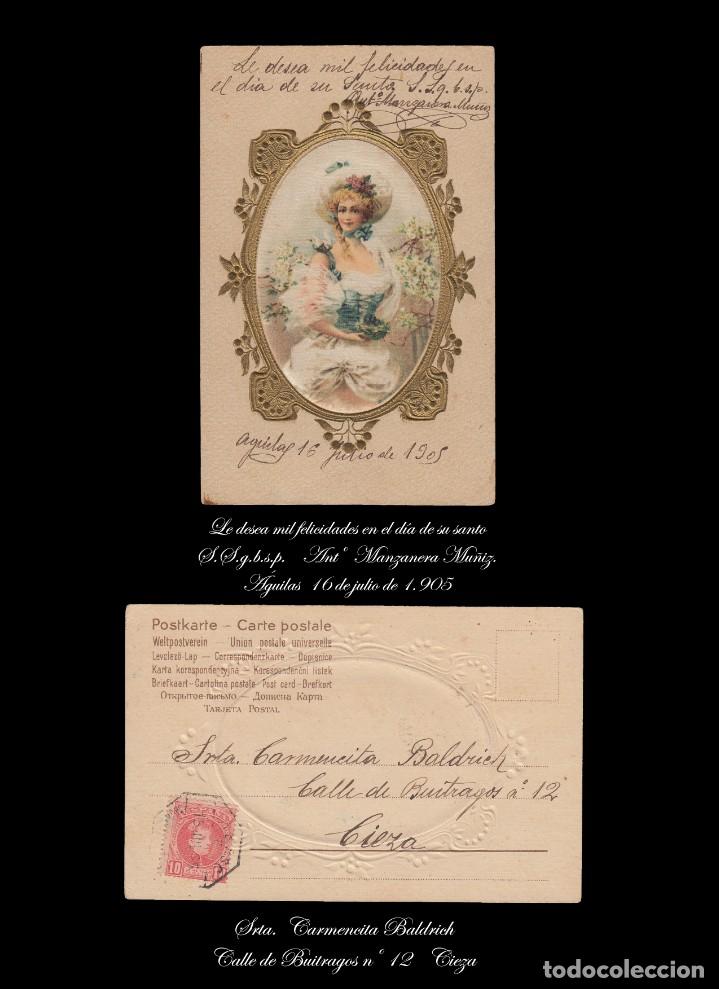 Le desea mil felicidades en
el dia de su Santo S.S.g.b.s.p.
Antº Manzanera Muñiz
Aguilas 16 julio de 1905
Le desea mil felicidades en el día de su santo
S.S.g.b.s.p. Antº Manzanera Muñiz.
Águilas 16 de julio de 1.905
Postkarte – Carte postale
Weltpostverein – Union postale universelle
Levelező-Lap – Correspondenzkarte – Dopisnice
Karta korespondencyjna – Korespondenční lístek
Briefkaart – Cartolina postale – Post card – Brefkort
Открытое письмо – Дописна Карта
Tarjeta Postal
Srta. Carmencita Baldrich
Calle de Buitragos nº 12
Cieza
10 CENTs
Srta. Carmencita Baldrich
Calle de Buitragos nº 12 Cieza
todocoleccion